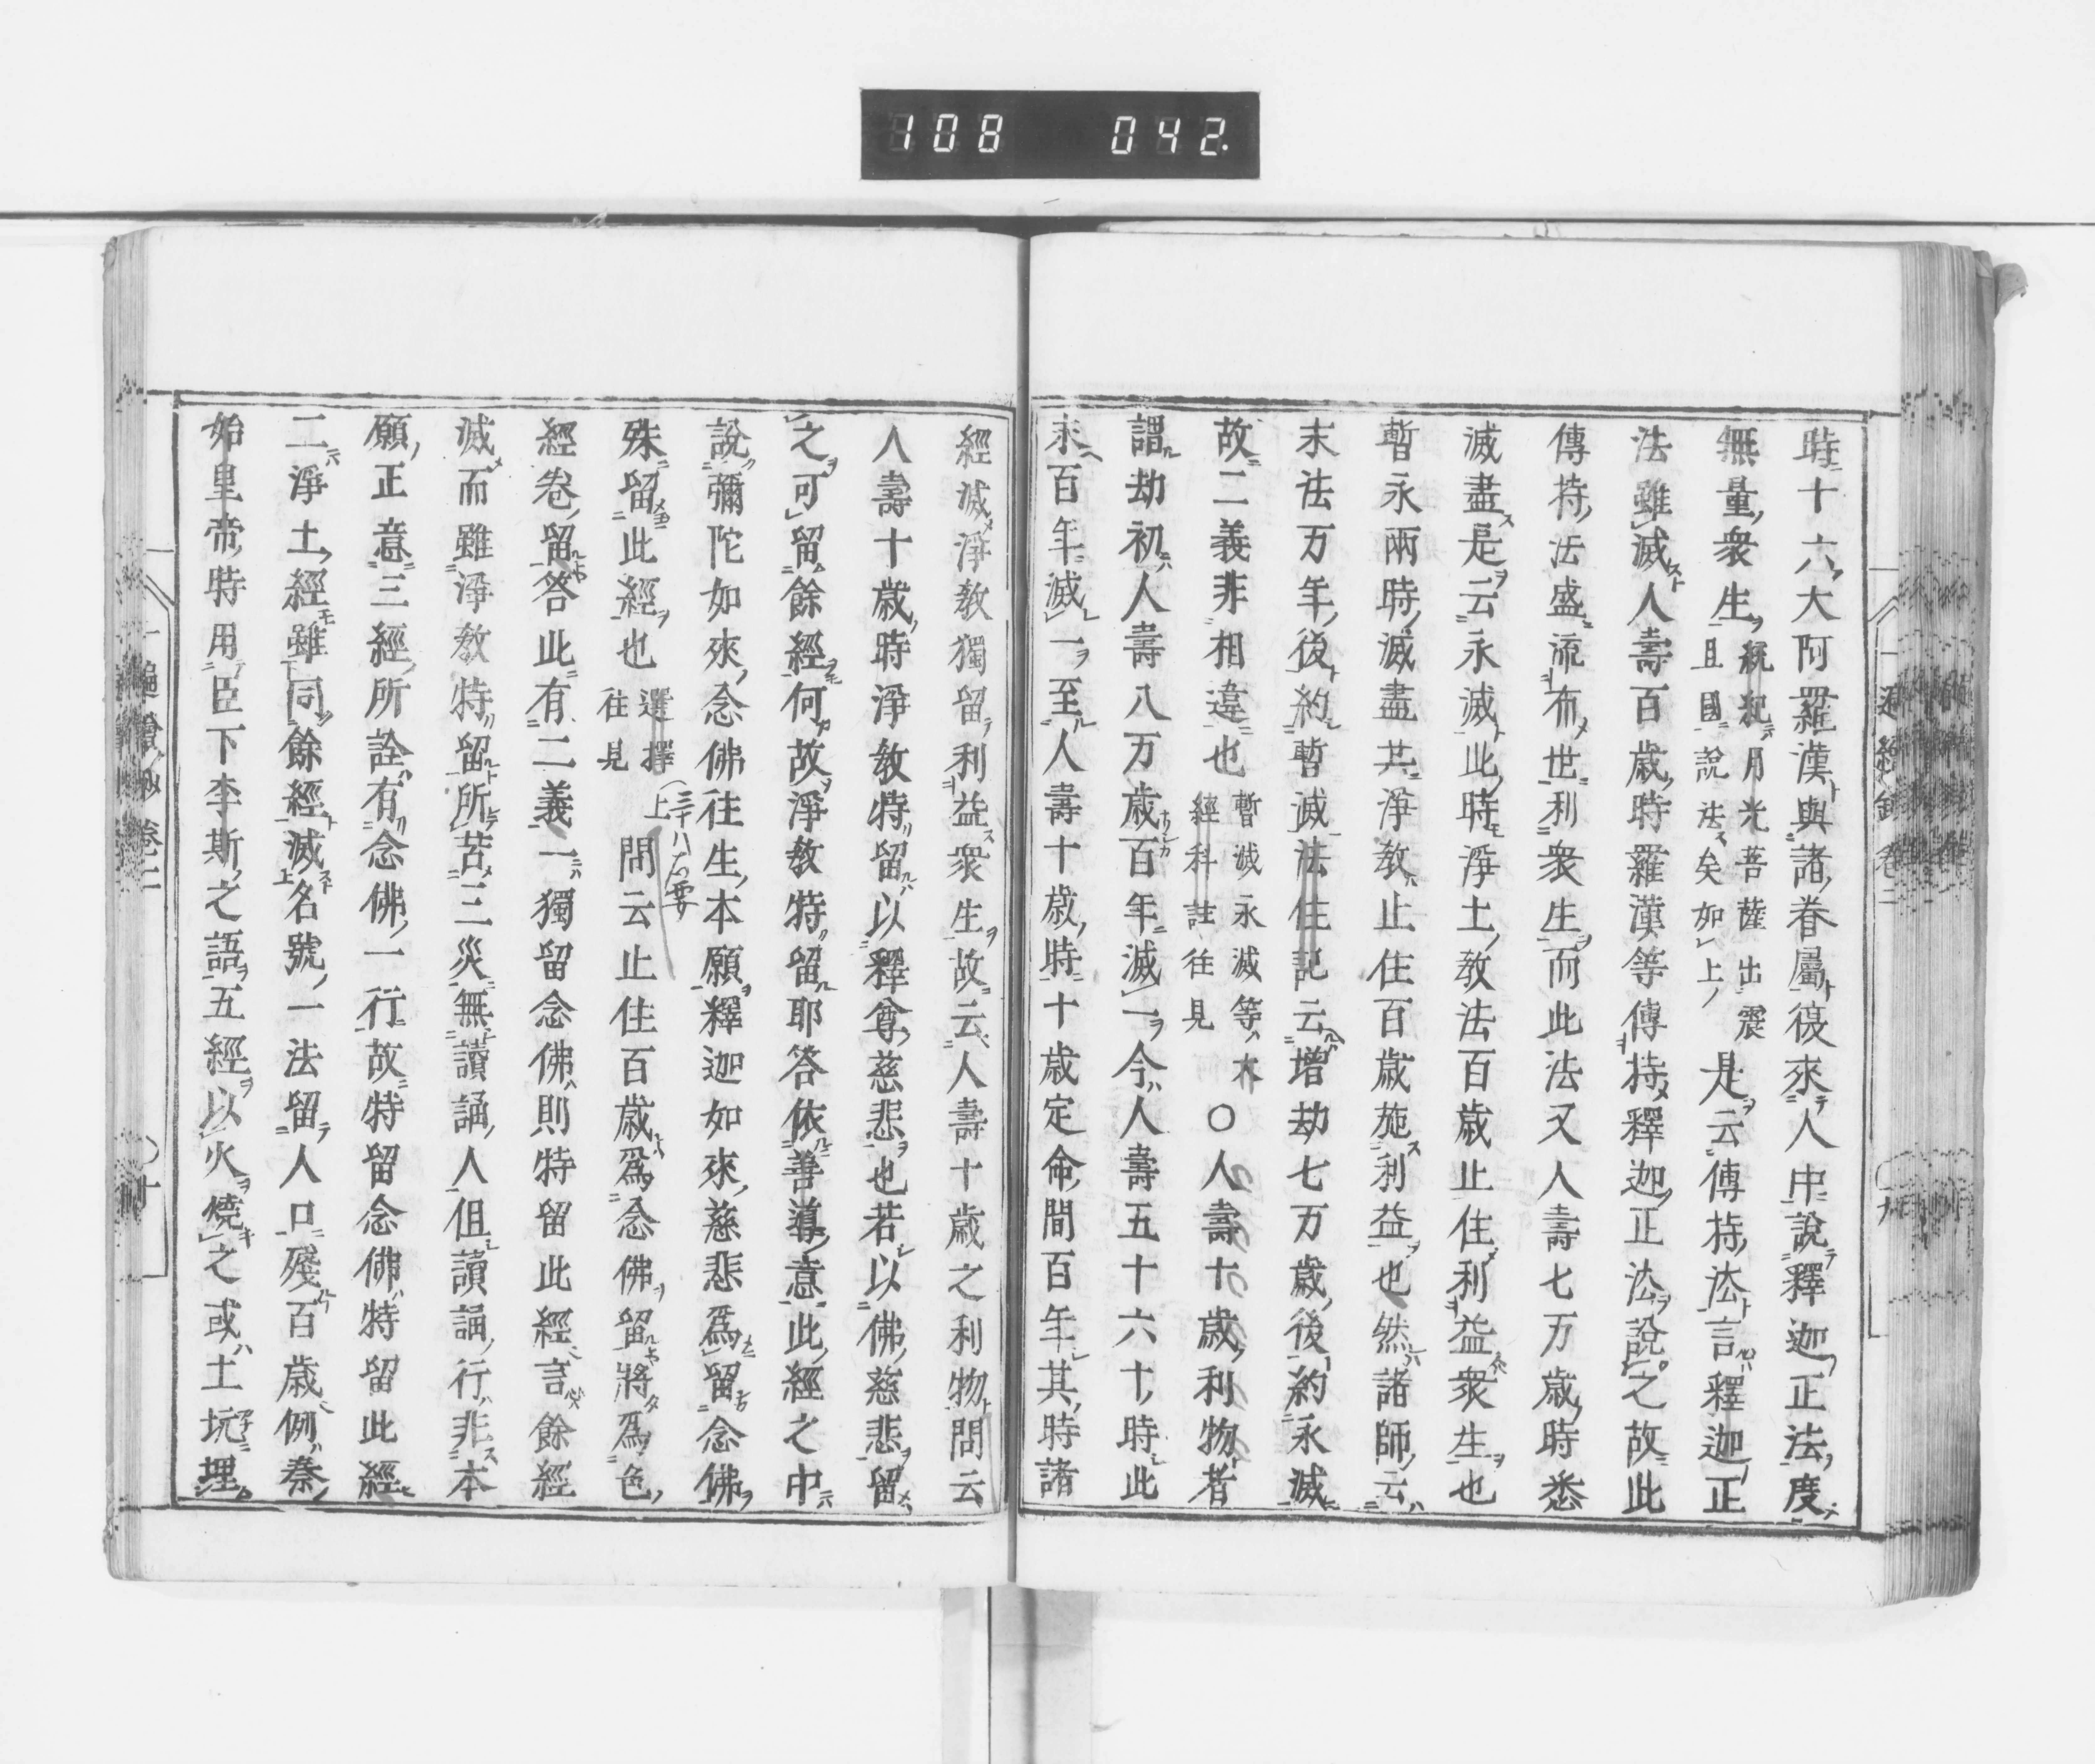 108 042.
時十六大阿羅漢與諸眷屬復來人中說釋迦正法度
無量衆生
且國說法矣如上
是云傳持法言釋迦正
法雖滅人壽百歲時羅漢等傳持釋迦正法說之故此
傳持法盛流布世利衆生而此法又人壽七万歲時悉
滅盡是云永滅此時淨土教法百歲止住利益衆生也
暫永兩時滅盡共淨教止住百歲施利益也然諸師云
末法万年後約暫滅法住記云增劫七万歲後約永滅
故二義非相違也
暫滅永滅等
經科註往見
○人壽十歲利物者
謂劫初人壽八万歲百年滅一今人壽五十六十時此
末百年滅一至人壽十歲時十歲定命間百年其時諸
經滅淨教獨留利益衆生故云人壽十歲之利物問云
人壽十歲時淨教特留以釋尊慈悲也若以佛慈悲留
之可留餘經何故淨教特留耶答依善導意此經之中
說彌陀如來念佛往生本願釋迦如來慈悲爲留念佛
殊留此經也
選擇
往見
問云止住百歲爲念佛留將爲色
經卷留答此有二義一獨留念佛則特留此經言餘經
滅而雖淨教特留所苦三災無讀誦人但讀誦行非本
願正意三經所詮有念佛一行故特留念佛特留此經
二淨土經雖同餘經滅名號一法留人口殘百歲例秦
始皇帝時用臣下李斯之語五經以火燒之或土坑埋